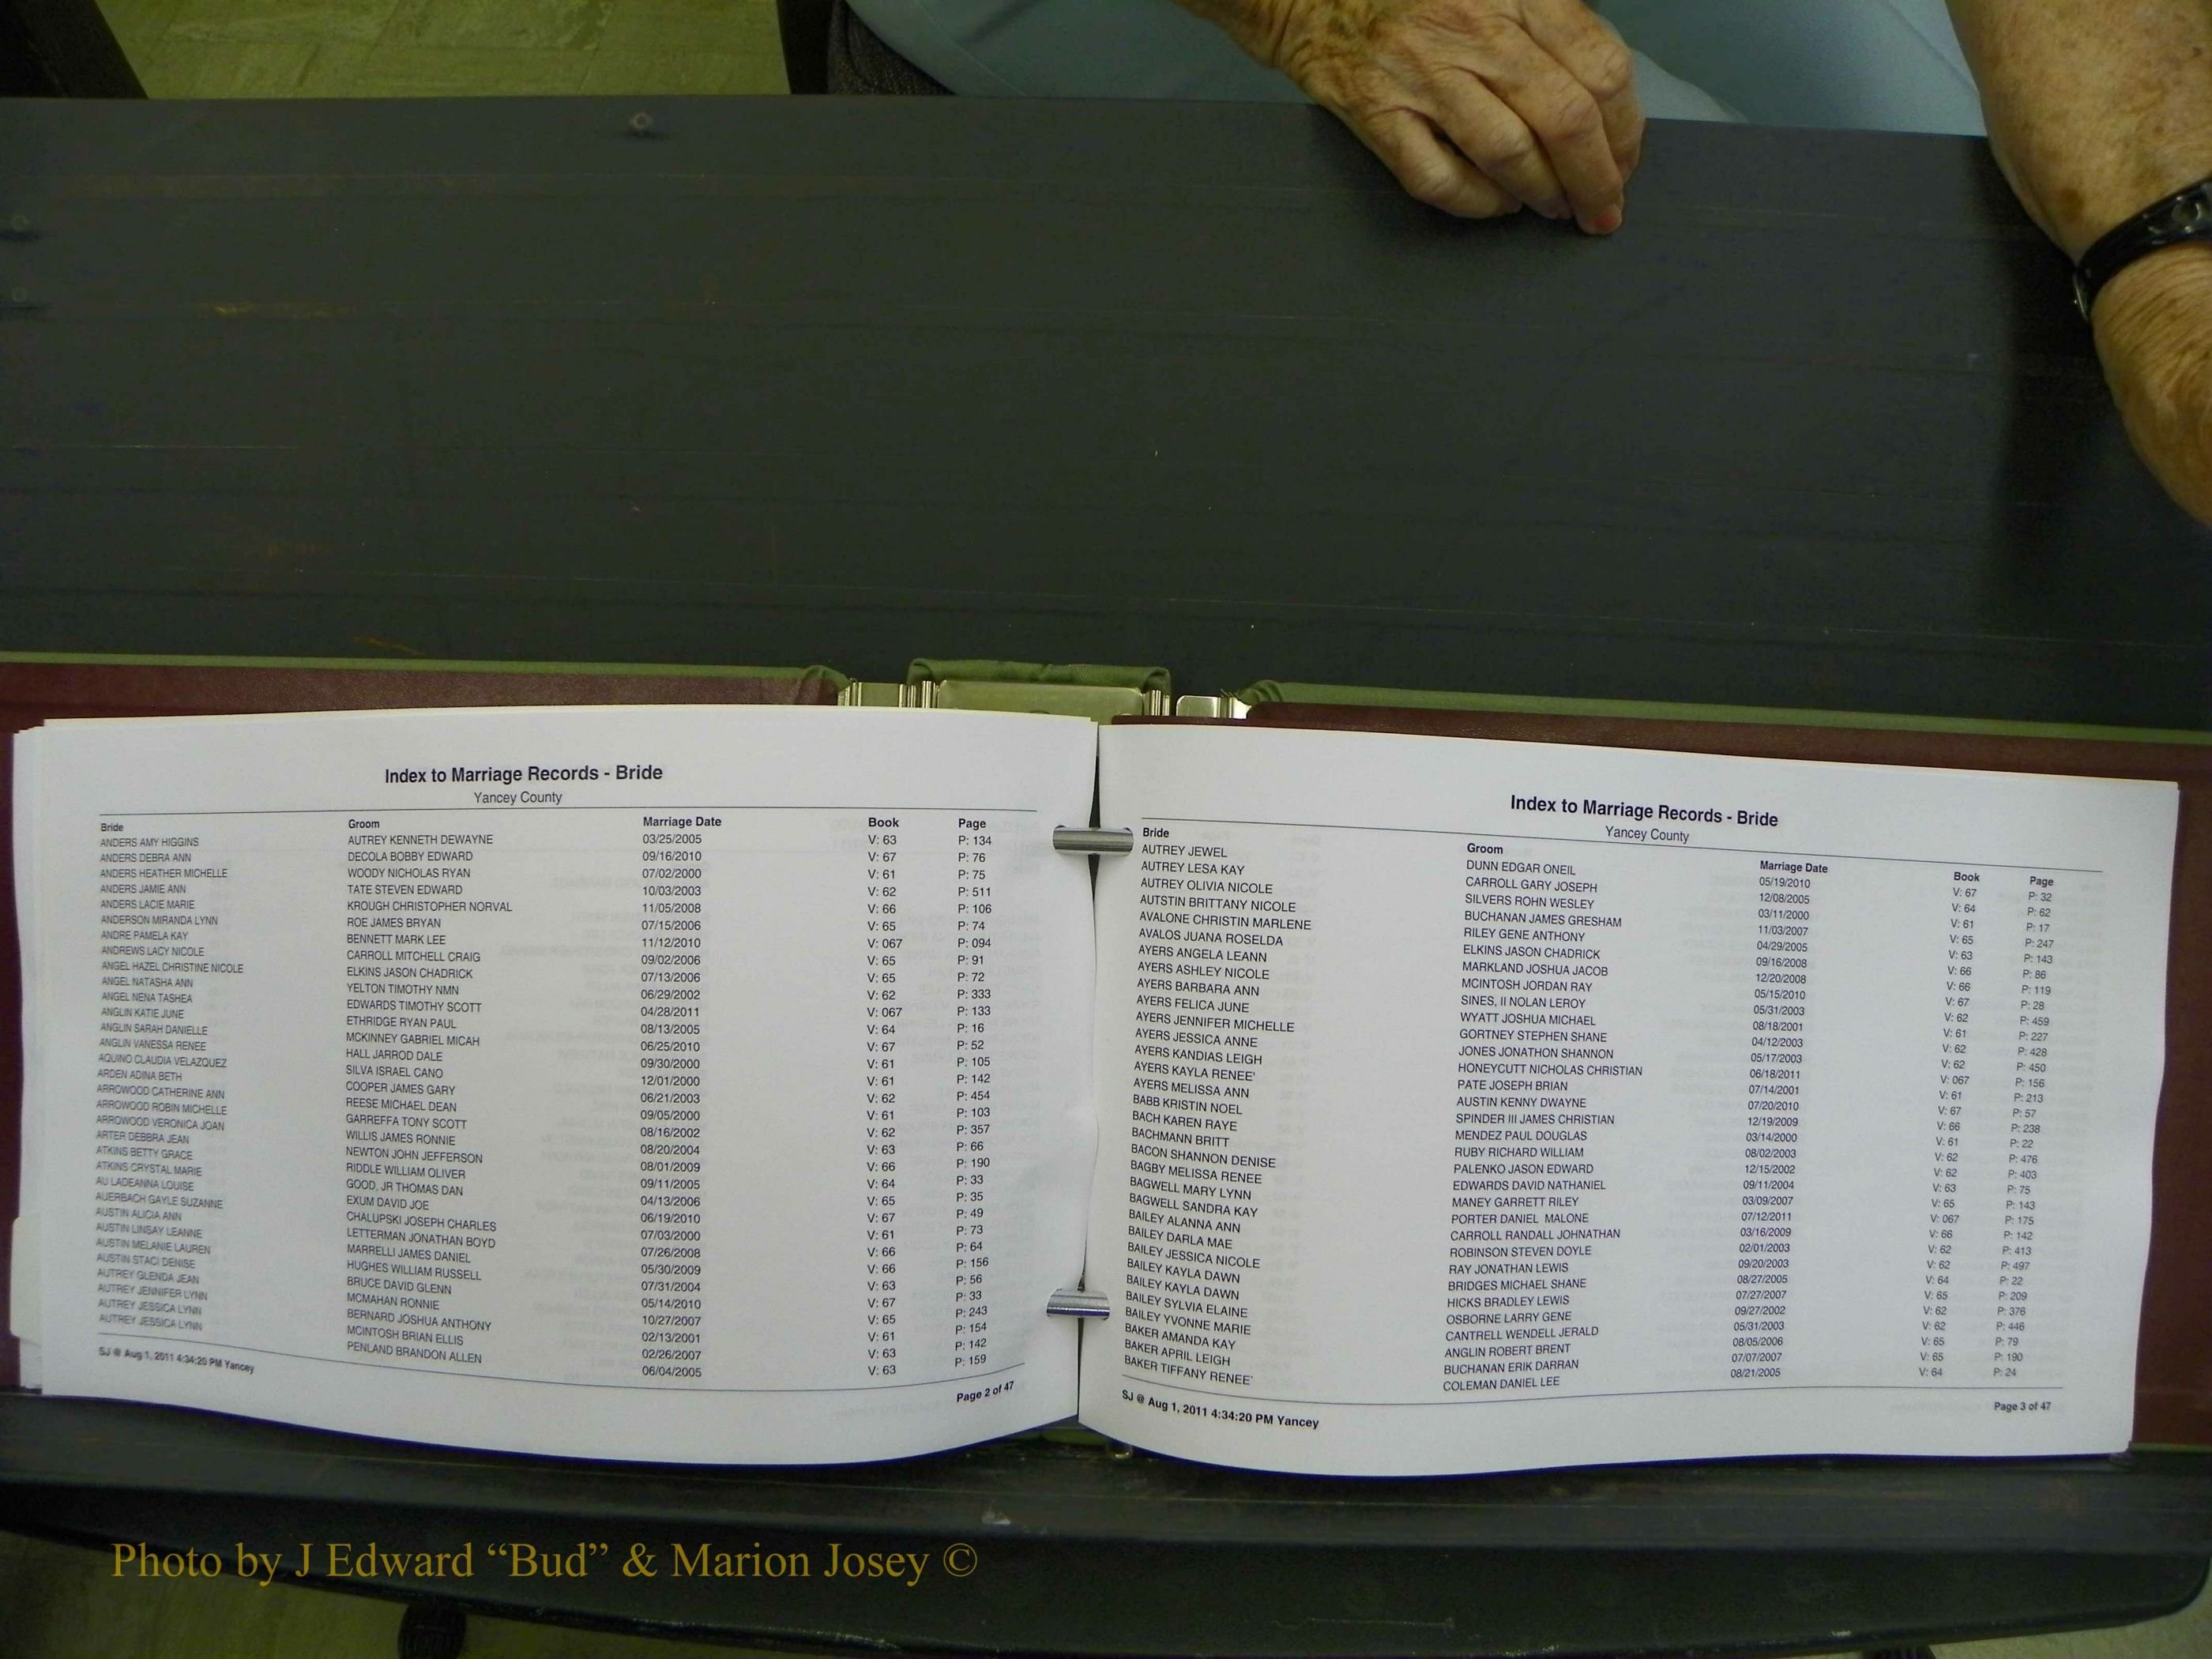 Index to Marriage Records - Bride
Yancey County
Bride Groom Marriage Date Book Page
ANDERS AMY HIGGINS AUTREY KENNETH DEWAYNE 03/25/2005 V: 63 P: 134
ANDERS DEBRA ANN DECOLA BOBBY EDWARD 09/16/2010 V: 67 P: 76
ANDERS HEATHER MICHELLE WOODY NICHOLAS RYAN 07/02/2000 V: 61 P: 75
ANDERS JAMIE ANN TATE STEVEN EDWARD 10/03/2003 V: 62 P: 511
ANDERS LACIE MARIE KROUGH CHRISTOPHER NORVAL 11/05/2008 V: 66 P: 106
ANDERSON MIRANDA LYNN ROE JAMES BRYAN 07/15/2006 V: 65 P: 74
ANDRE PAMELA KAY BENNETT MARK LEE 11/12/2010 V: 067 P: 094
ANDREWS LACY NICOLE CARROLL MITCHELL CRAIG 09/02/2006 V: 65 P: 91
ANGEL HAZEL CHRISTINE NICOLE ELKINS JASON CHADRICK 07/13/2006 V: 65 P: 72
ANGEL NATASHA ANN YELTON TIMOTHY NMN 06/29/2002 V: 62 P: 333
ANGEL NENA TASHEA EDWARDS TIMOTHY SCOTT 04/28/2011 V: 067 P: 133
ANGLIN KATIE JUNE ETHRIDGE RYAN PAUL 08/13/2005 V: 64 P: 16
ANGLIN SARAH DANIELLE MCKINNEY GABRIEL MICAH 06/25/2010 V: 67 P: 52
ANGLIN VANESSA RENEE HALL JARROD DALE 09/30/2000 V: 61 P: 105
AQUINO CLAUDIA VELAZQUEZ SILVA ISRAEL CANO 12/01/2000 V: 61 P: 142
ARDEN ADINA BETH COOPER JAMES GARY 06/21/2003 V: 62 P: 454
ARROWOOD CATHERINE ANN REESE MICHAEL DEAN 09/05/2000 V: 61 P: 103
ARROWOOD ROBIN MICHELLE GARREFFA TONY SCOTT 08/16/2002 V: 62 P: 357
ARROWOOD VERONICA JOAN WILLIS JAMES RONNIE 08/20/2004 V: 63 P: 66
ARTER DEBBRA JEAN NEWTON JOHN JEFFERSON 08/01/2009 V: 66 P: 190
ATKINS BETTY GRACE RIDDLE WILLIAM OLIVER 09/11/2005 V: 64 P: 33
ATKINS CRYSTAL MARIE GOOD, JR THOMAS DAN 04/13/2006 V: 65 P: 35
AU LADEANNA LOUISE EXUM DAVID JOE 06/19/2010 V: 67 P: 49
AUERBACH GAYLE SUZANNE CHALUPSKI JOSEPH CHARLES 07/03/2000 V: 61 P: 73
AUSTIN ALICIA ANN LETTERMAN JONATHAN BOYD 07/26/2008 V: 66 P: 64
AUSTIN LINSAY LEANNE MARRELLI JAMES DANIEL 05/30/2009 V: 66 P: 156
AUSTIN MELANIE LAUREN HUGHES WILLIAM RUSSELL 07/31/2004 V: 63 P: 56
AUSTIN STACI DENISE BRUCE DAVID GLENN 05/14/2010 V: 67 P: 33
AUTREY GLENDA JEAN MCMAHAN RONNIE 10/27/2007 V: 65 P: 243
AUTREY JENNIFER LYNN BERNARD JOSHUA ANTHONY 02/13/2001 V: 61 P: 154
AUTREY JESSICA LYNN MCINTOSH BRIAN ELLIS 02/26/2007 V: 63 P: 142
AUTREY JESSICA LYNN PENLAND BRANDON ALLEN 06/04/2005 V: 63 P: 159
SJ @ Aug 1, 2011 4:34:20 PM Yancey Page 2 of 47
Index to Marriage Records - Bride
Yancey County
Bride Groom Marriage Date Book Page
AUTREY JEWEL DUNN EDGAR ONEIL 05/19/2010 V: 67 P: 32
AUTREY LESA KAY CARROLL GARY JOSEPH 12/08/2005 V: 64 P: 62
AUTREY OLIVIA NICOLE SILVERS ROHN WESLEY 03/11/2000 V: 61 P: 17
AUTSTIN BRITTANY NICOLE BUCHANAN JAMES GRESHAM 11/03/2007 V: 65 P: 247
AVALONE CHRISTIN MARLENE RILEY GENE ANTHONY 04/29/2005 V: 63 P: 143
AVALOS JUANA ROSELDA ELKINS JASON CHADRICK 09/16/2008 V: 66 P: 86
AYERS ANGELA LEANN MARKLAND JOSHUA JACOB 12/20/2008 V: 66 P: 119
AYERS ASHLEY NICOLE MCINTOSH JORDAN RAY 05/15/2010 V: 67 P: 28
AYERS BARBARA ANN SINES, II NOLAN LEROY 05/31/2003 V: 62 P: 459
AYERS FELICA JUNE WYATT JOSHUA MICHAEL 08/18/2001 V: 61 P: 227
AYERS JENNIFER MICHELLE GORTNEY STEPHEN SHANE 04/12/2003 V: 62 P: 428
AYERS JESSICA ANNE JONES JONATHON SHANNON 05/17/2003 V: 62 P: 450
AYERS KANDIAS LEIGH HONEYCUTT NICHOLAS CHRISTIAN 06/18/2011 V: 067 P: 156
AYERS KAYLA RENEE' PATE JOSEPH BRIAN 07/14/2001 V: 61 P: 213
AYERS MELISSA ANN AUSTIN KENNY DWAYNE 07/20/2010 V: 67 P: 57
BABB KRISTIN NOEL SPINDER III JAMES CHRISTIAN 12/19/2009 V: 66 P: 238
BACH KAREN RAYE MENDEZ PAUL DOUGLAS 03/14/2000 V: 61 P: 22
BACHMANN BRITT RUBY RICHARD WILLIAM 08/02/2003 V: 62 P: 476
BACON SHANNON DENISE PALENKO JASON EDWARD 12/15/2002 V: 62 P: 403
BAGBY MELISSA RENEE EDWARDS DAVID NATHANIEL 09/11/2004 V: 63 P: 75
BAGWELL MARY LYNN MANEY GARRETT RILEY 03/09/2007 V: 65 P: 143
BAGWELL SANDRA KAY PORTER DANIEL MALONE 07/12/2011 V: 067 P: 175
BAILEY ALANNA ANN CARROLL RANDALL JOHNATHAN 03/16/2009 V: 66 P: 142
BAILEY DARLA MAE ROBINSON STEVEN DOYLE 02/01/2003 V: 62 P: 413
BAILEY JESSICA NICOLE RAY JONATHAN LEWIS 09/20/2003 V: 62 P: 497
BAILEY KAYLA DAWN BRIDGES MICHAEL SHANE 08/27/2005 V: 64 P: 22
BAILEY KAYLA DAWN HICKS BRADLEY LEWIS 07/27/2007 V: 65 P: 209
BAILEY SYLVIA ELAINE OSBORNE LARRY GENE 09/27/2002 V: 62 P: 376
BAILEY YVONNE MARIE CANTRELL WENDELL JERALD 05/31/2003 V: 62 P: 446
BAKER AMANDA KAY ANGLIN ROBERT BRENT 08/05/2006 V: 65 P: 79
BAKER APRIL LEIGH BUCHANAN ERIK DARRAN 07/07/2007 V: 65 P: 190
BAKER TIFFANY RENEE' COLEMAN DANIEL LEE 08/21/2005 V: 64 P: 24
SJ @ Aug 1, 2011 4:34:20 PM Yancey Page 3 of 47
Photo by J Edward “Bud” & Marion Josey ©